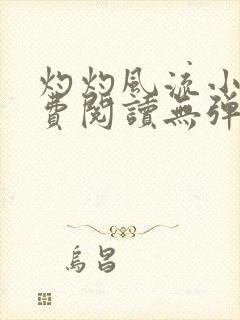 灼灼風流小
費閱讀無彈
烏昌